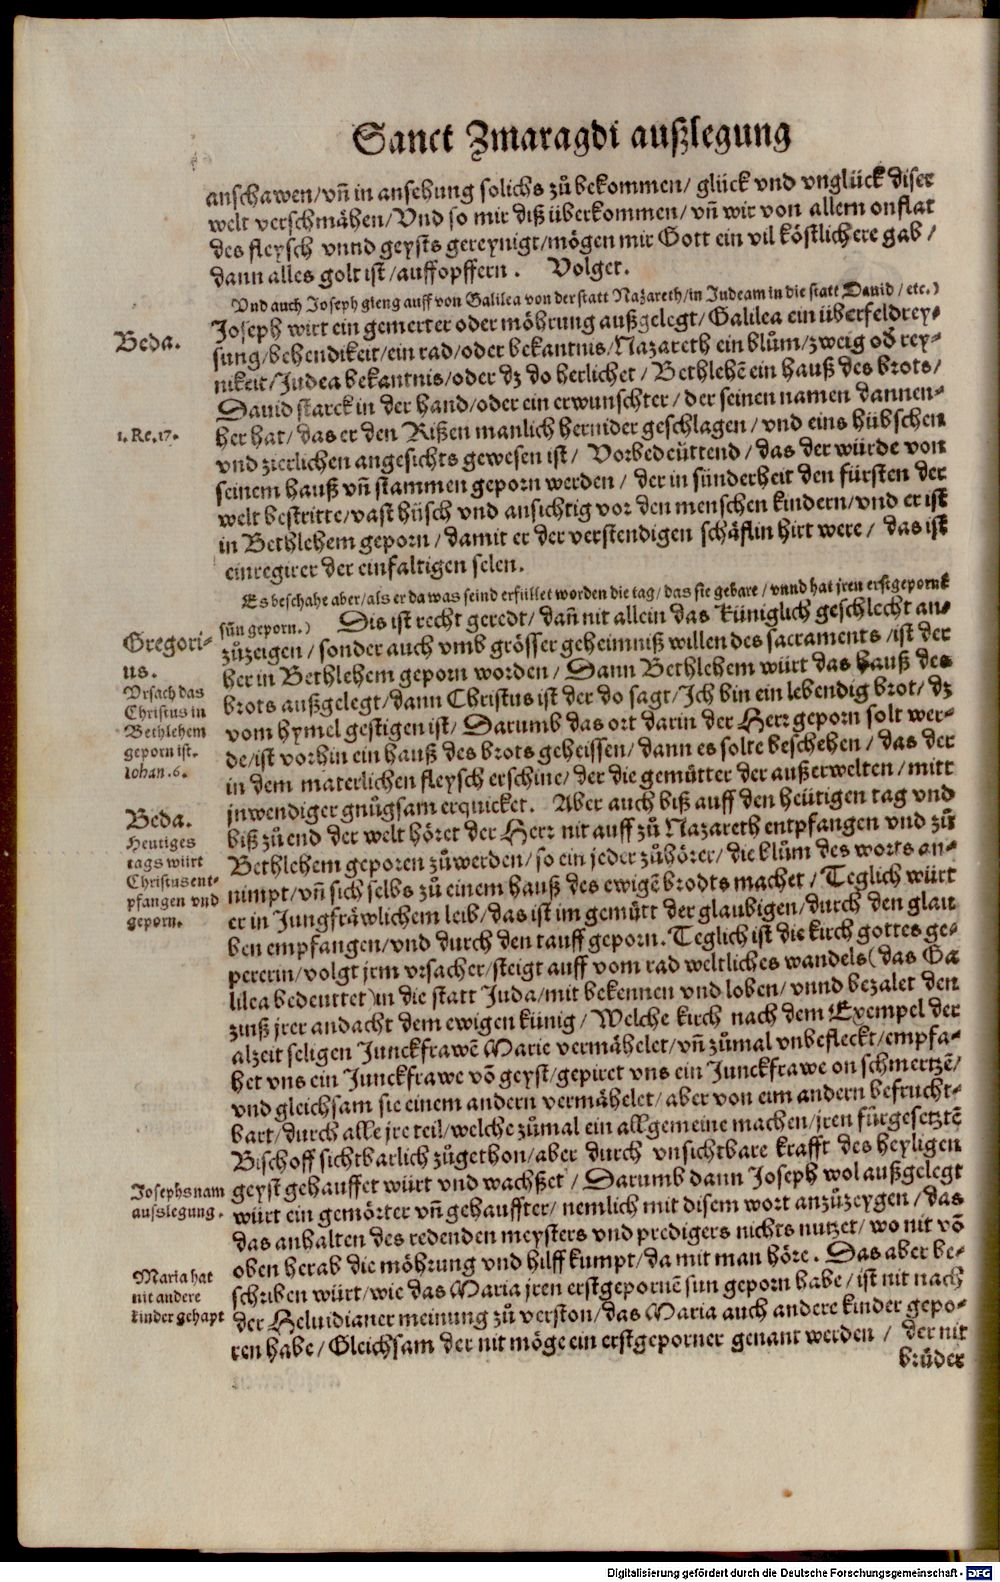 Sanct Zmaragdi außlegung
anschawen/ vñ in ansehung solichs zů bekommen/ glück vnd vnglück diser
welt verschmähen/ Vnd so mir diß überkommen/ vñ wir von allem onflat
des fleysch vnnd geysts gereynigt/ mögen mir Gott ein vil köstlichere gab/
dann alles golt ist/ auffopffern. Volget.
Vnd auch Joseph gieng auff von Galilea von der statt Nazareth/ in Judeam in die statt Dauid/ etc.)
Beda.
Joseph wirt ein gemerter oder möhrung außgelegt/ Galilea ein überfeldrey-
sung/ behendikeit/ ein rad/ oder bekantnis/ Nazareth ein blům/ zweig od rey-
nikeit/ Judea bekantnis/ oder dz do herlichet/ Bethlehē ein hauß des brots/
Dauid starck in der hand/ oder ein erwunschter/ der seinen namen dannen-
1. Re. 17.
her hat/ das er den Rißen manlich hernider geschlagen/ vnd eins hübschen
vnd zierlichen angesichts gewesen ist/ Vorbedeüttend/ das der würde von
seinem hauß vñ stammen geporn werden/ der in sünderheit den fürsten der
welt bestritte/ vast hüsch vnd ansichtig vor den menschen kindern/ vnd er ist
in Bethlehem geporn/ damit er der verstendigen schäflin hirt were/ das ist
ein regirer der einfaltigen selen.
Es beschahe aber/ als er da was seind erfüllet worden die tag/ das sie gebare/ vnnd hat jren erstgepornē
sün geporn.) Dis ist recht geredt/ dañ nit allein das küniglich geschlecht an-
Gregori-
us.
Vrsach das
Christus in
Bethlehem
geporn ist.
Iohan. 6.
zůzeigen/ sonder auch vmb grösser geheimniß willen des sacraments/ ist der
her in Bethlehem geporn worden/ Dann Bethlehem würt das hauß des
brots außgelegt/ dann Christus ist der do sagt/ Ich bin ein lebendig brot/ dz
vom hymel gestigen ist/ Darumb das ort darin der Herr geporn solt wer-
de/ ist vorhin ein hauß des brots geheissen/ dann es solte beschehen/ das der
in dem materlichen fleysch erschine/ der die gemütter der außerwelten/ mitt
jnwendiger gnůgsam erquicket. Aber auch biß auff den heütigen tag vnd
Beda.
Heutiges
tags würt
Christus ent-
pfangen vnd
geporn.
biß zů end der welt höret der Herr nit auff zů Nazareth entpfangen vnd zů
Bethlehem geporen zůwerden/ so ein jeder zůhörer/ die blům des worts an-
nimpt/ vñ sich selbs zů einem hauß des ewigē brodts machet/ Teglich würt
er in Jungfräwlichem leib/ das ist im gemütt der glaubigen/ durch den glau
ben empfangen/ vnd durch den tauff geporn. Teglich ist die kirch gottes ge-
pererin/ volgt jrm vrsacher/ steigt auff vom rad weltliches wandels (das Ga
lilea bedeuttet) in die statt Juda/ mit bekennen vnd loben/ vnnd bezalet den
zinß jrer andacht dem ewigen künig/ Welche kirch nach dem Exempel der
alzeit seligen Junckfrawē Marie vermähelet/ vñ zůmal vnbefleckt/ empfa-
het vns ein Junckfrawe vō geyst/ gepiret vns ein Junckfrawe on schmertzē/
vnd gleichsam sie einem andern vermähelet/ aber von eim andern befrucht-
bart/ durch alle jre teil/ welche zůmal ein allgemeine machen/ jren fürgesetztē
Bischoff sichtbarlich zůgethon/ aber durch vnsichtbare krafft des heyligen
Josephs nam
ausslegung.
geyst gehauffet würt vnd wachßet/ Darumb dann Joseph wol außgelegt
würt ein gemörter vñ gehauffter/ nemlich mit disem wort anzůzeygen/ das
das anhalten des redenden meysters vnd predigers nichts nutzet/ wo nit vō
oben herab die möhrung vnd hilff kumpt/ da mit man höre. Das aber be-
Maria hat
nit andere
kinder gehapt
schriben würt/ wie das Maria jren erstgepornē sun geporn habe/ ist nit nach
der Heluidianer meinung zů verston/ das Maria auch andere kinder gepo-
ren habe/ Gleichsam der nit möge ein erstgeporner genant werden/ der nit
brüder
Digitalisierung gefördert durch die Deutsche Forschungsgemeinschaft - DFG